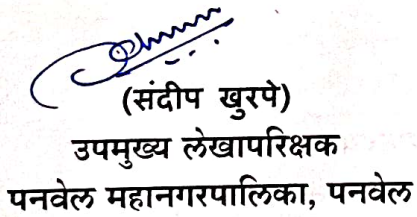 (संदीप खुरपे)
उपमुख्य लेखापरिक्षक
पनवेल महानगरपालिका, पनवेल